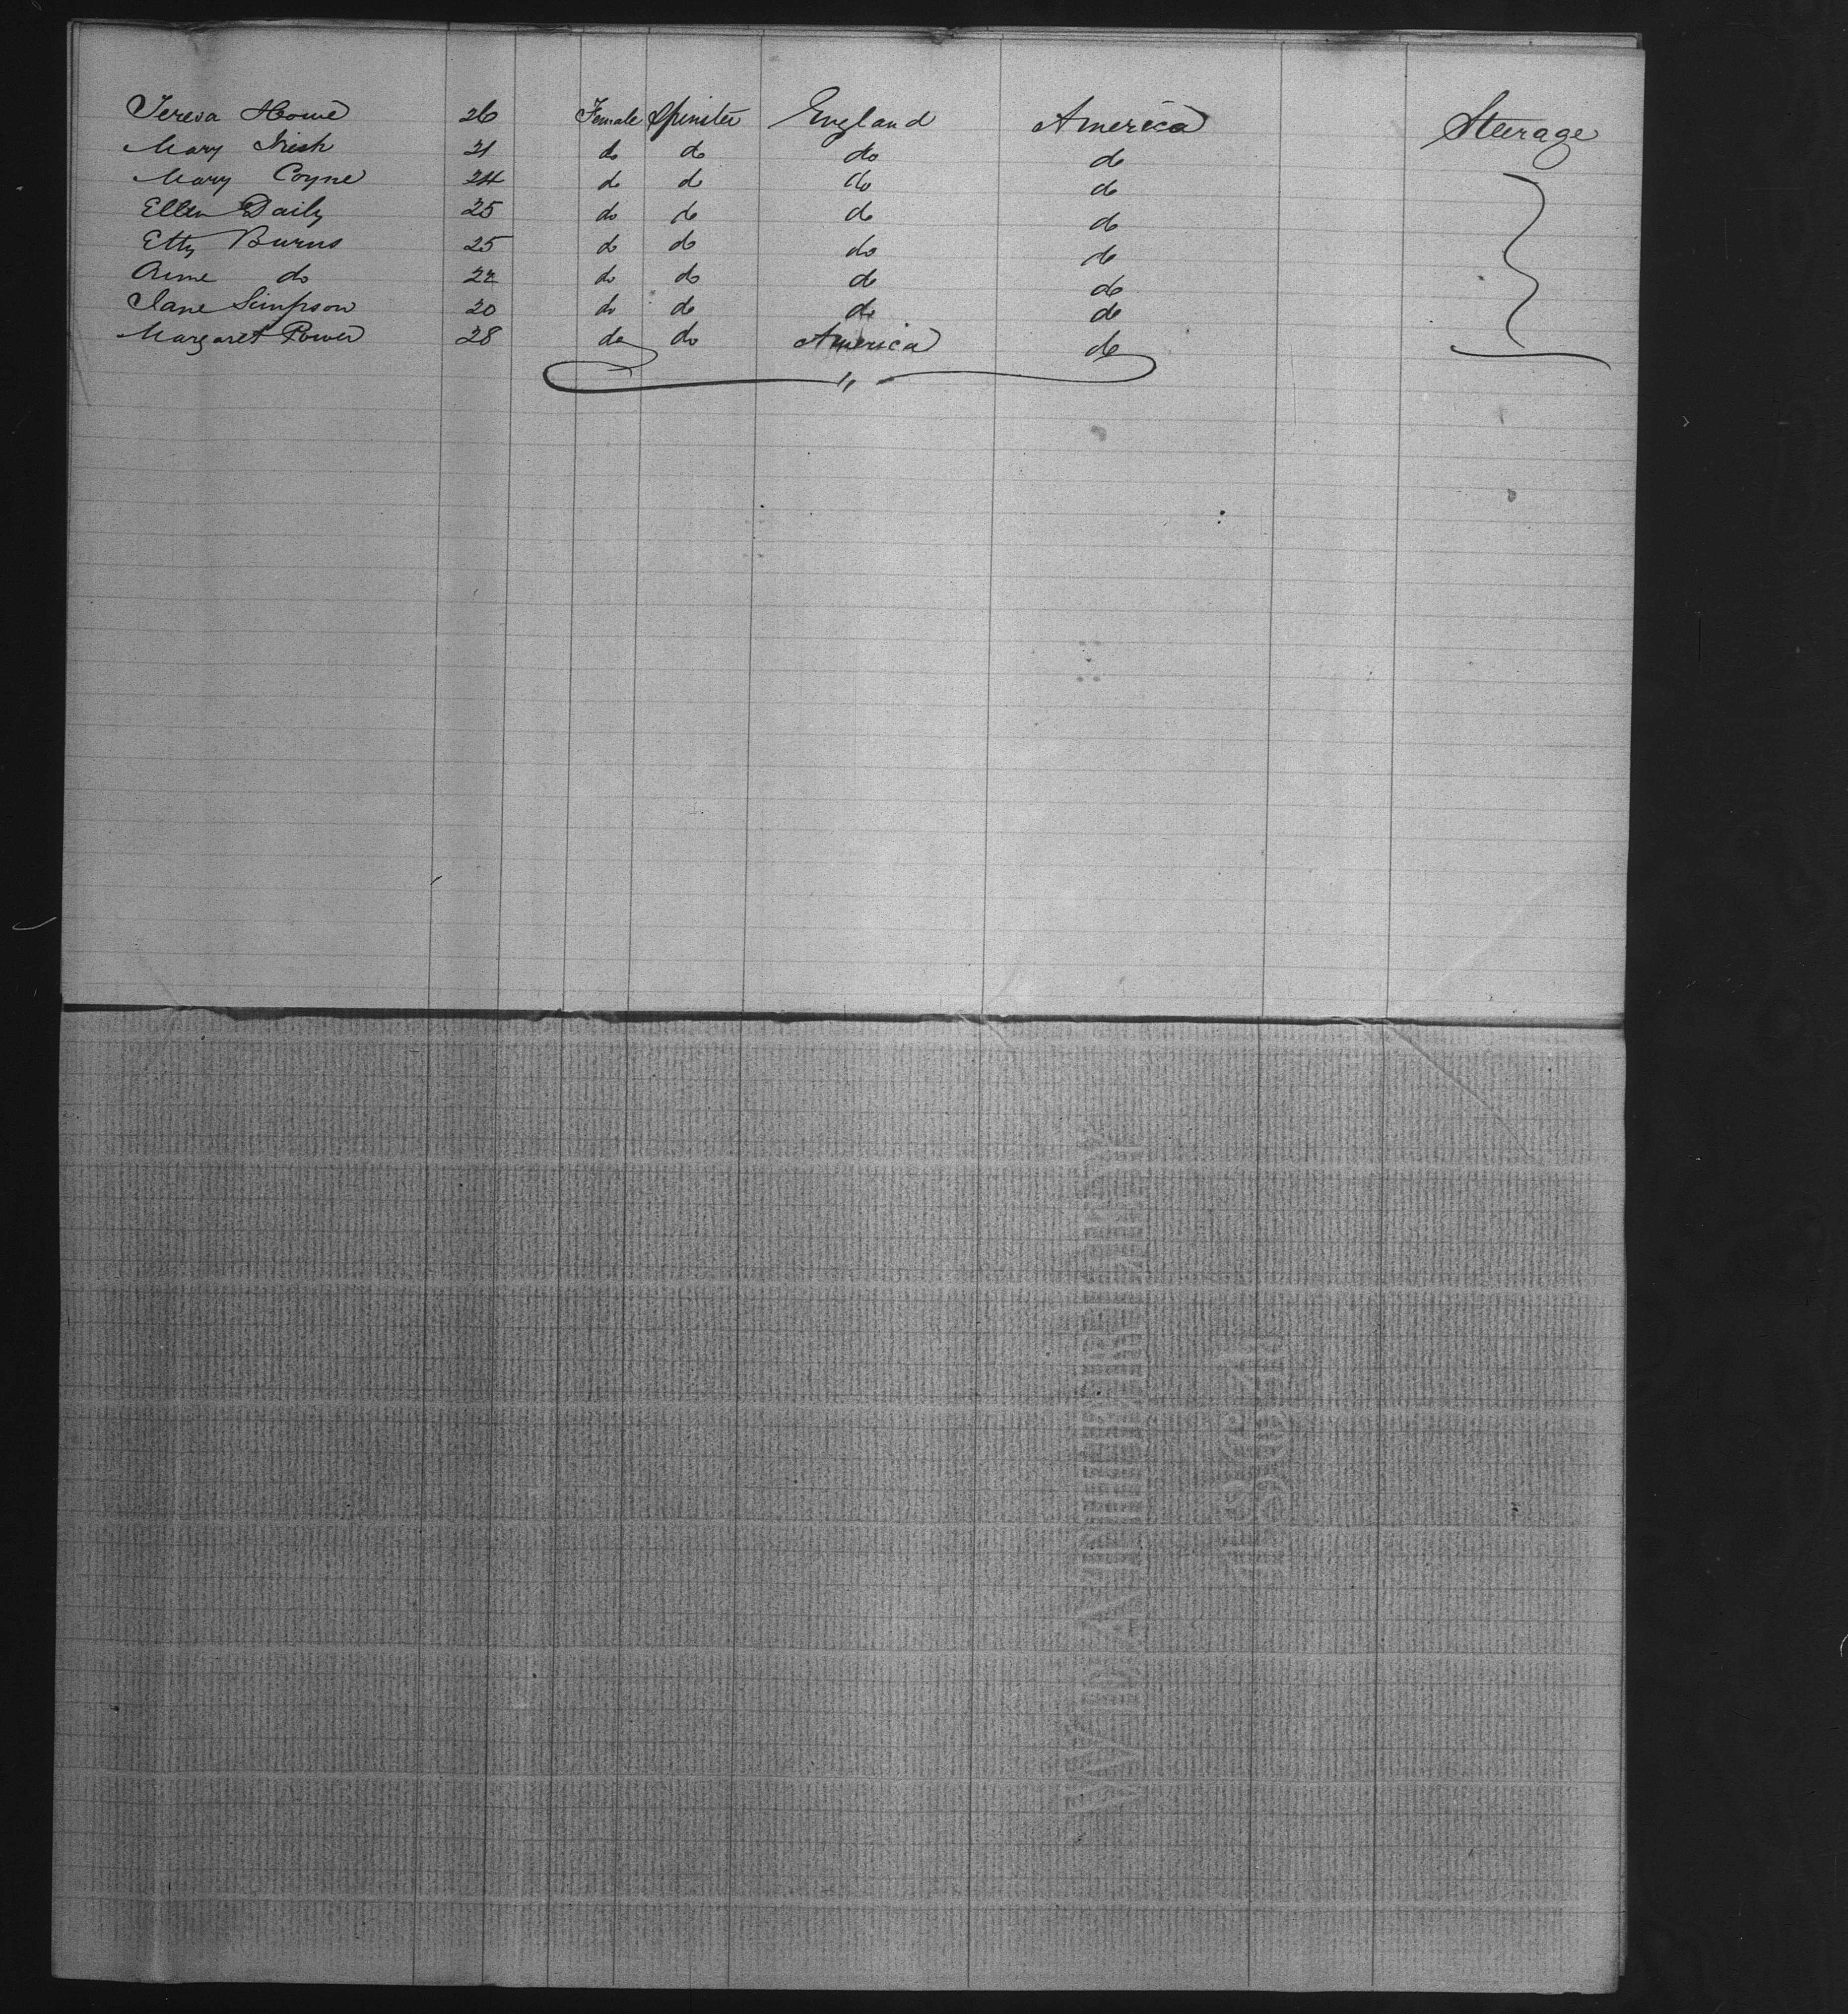 Teresa Howe 26 Female Spinster England America Steerage
Mary Irish 21 do do do do
Mary Coyne 24 do do do do
Ellen Daily 25 do do do do
Etty Burns 25 do do do do
Anne do 22 do do do do
Jane Simpson 20 do do do do
Margaret Power 28 do do America do